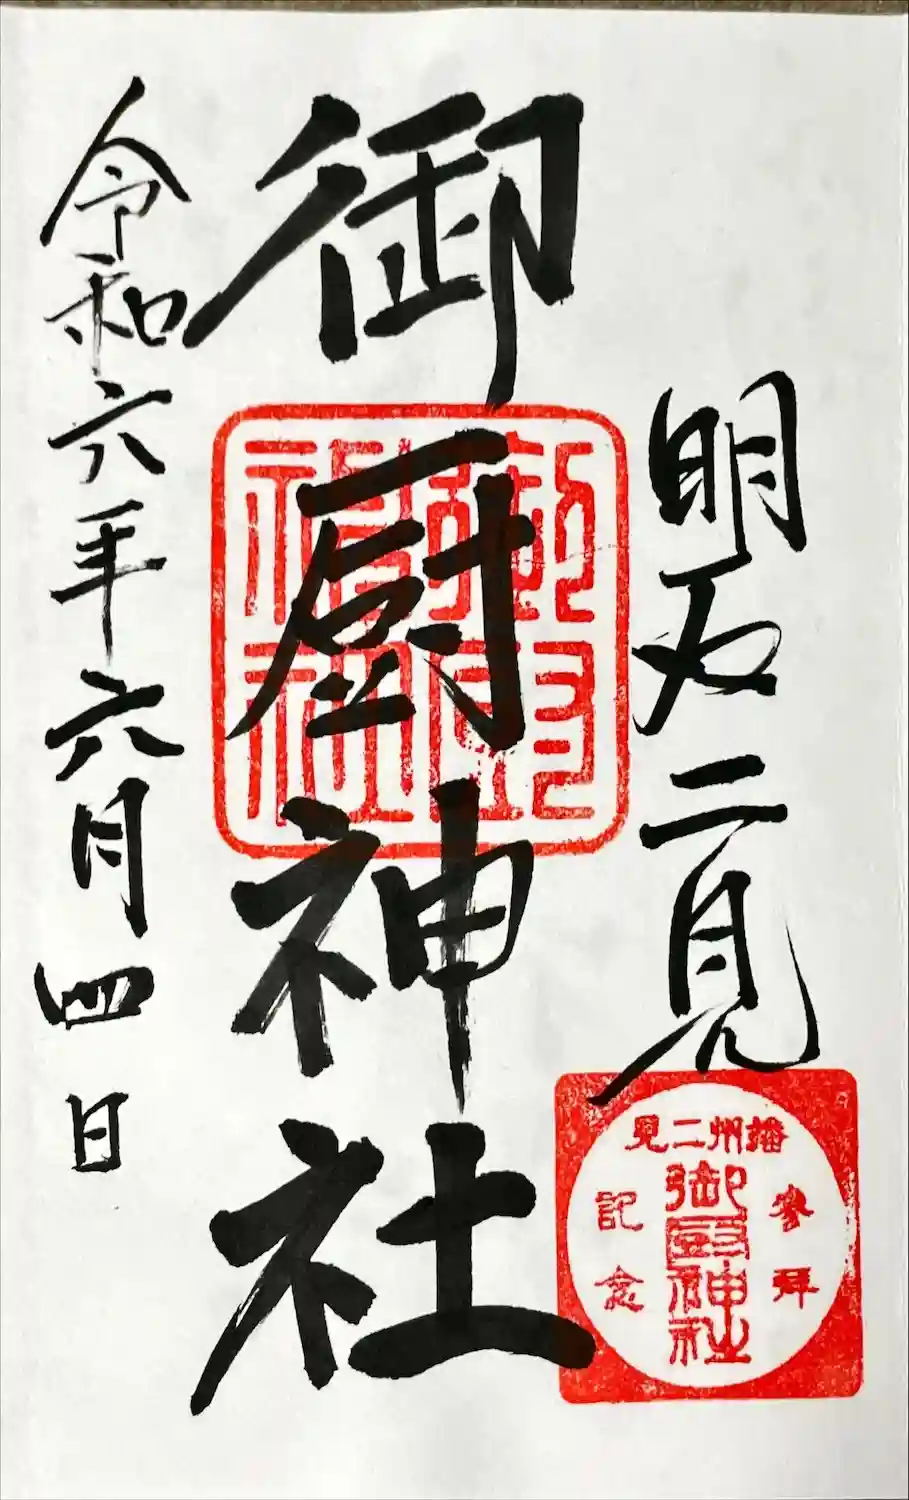 明石二見
御厨神社
令和六年六月四日
御厨
神社
播州二見
参拜
御厨神社
記念